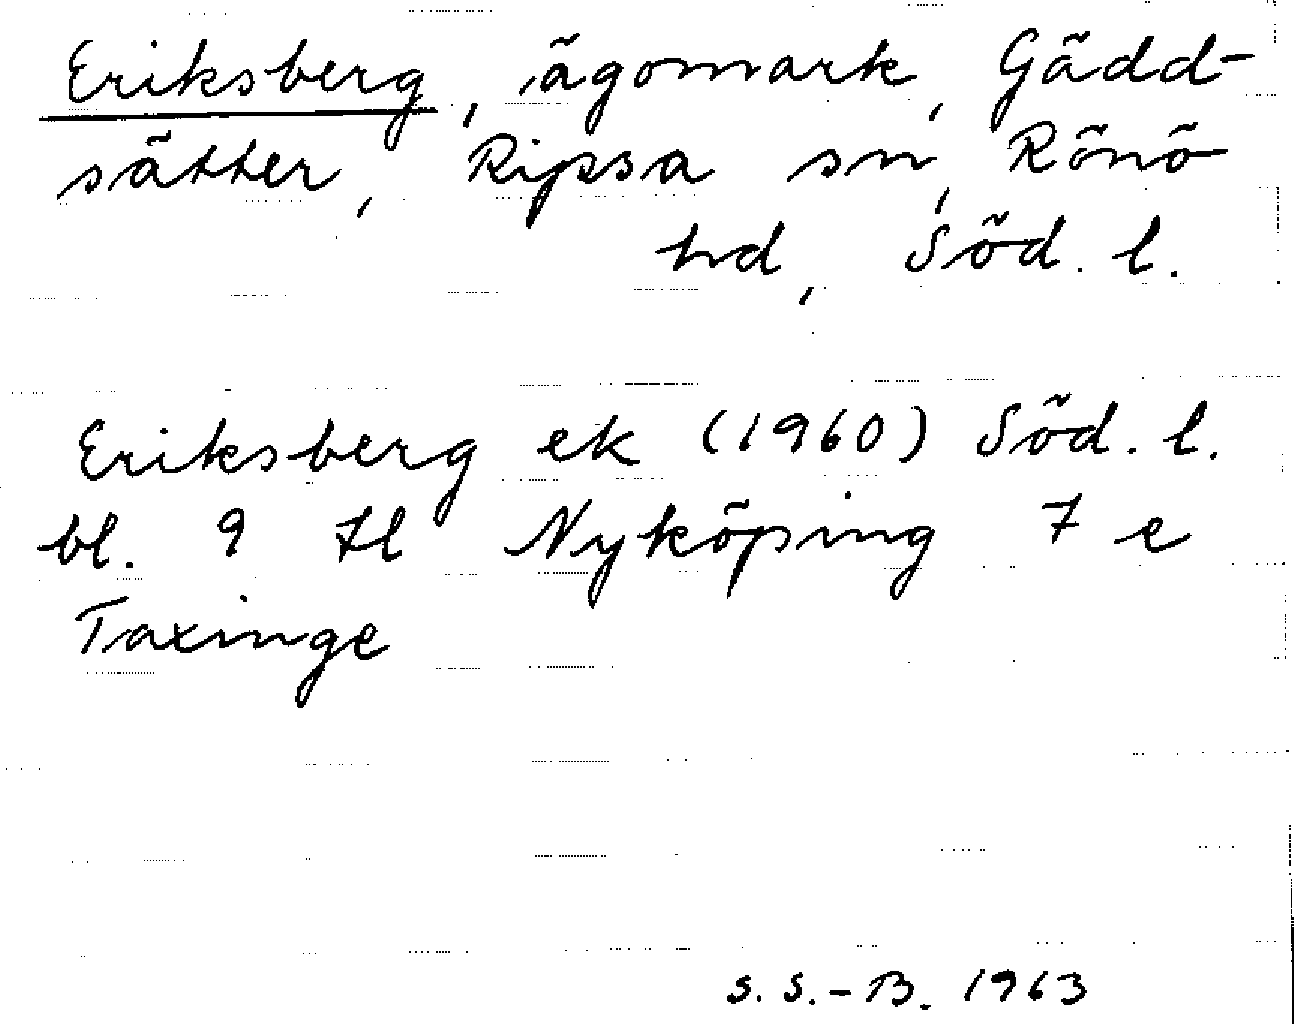 Eriksberg, ägomark, Gädd-
sätter, Ripsa sn, Rönö
hd, Söd. l.
Eriksberg ek (1960) Söd. l.
bl. 9 Il Nyköping 7 e
Taxinge
S. S.-B. 1963